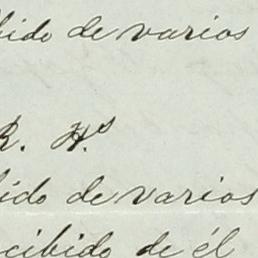 bido de varios
R. H.s
bido de varios
cibido de él